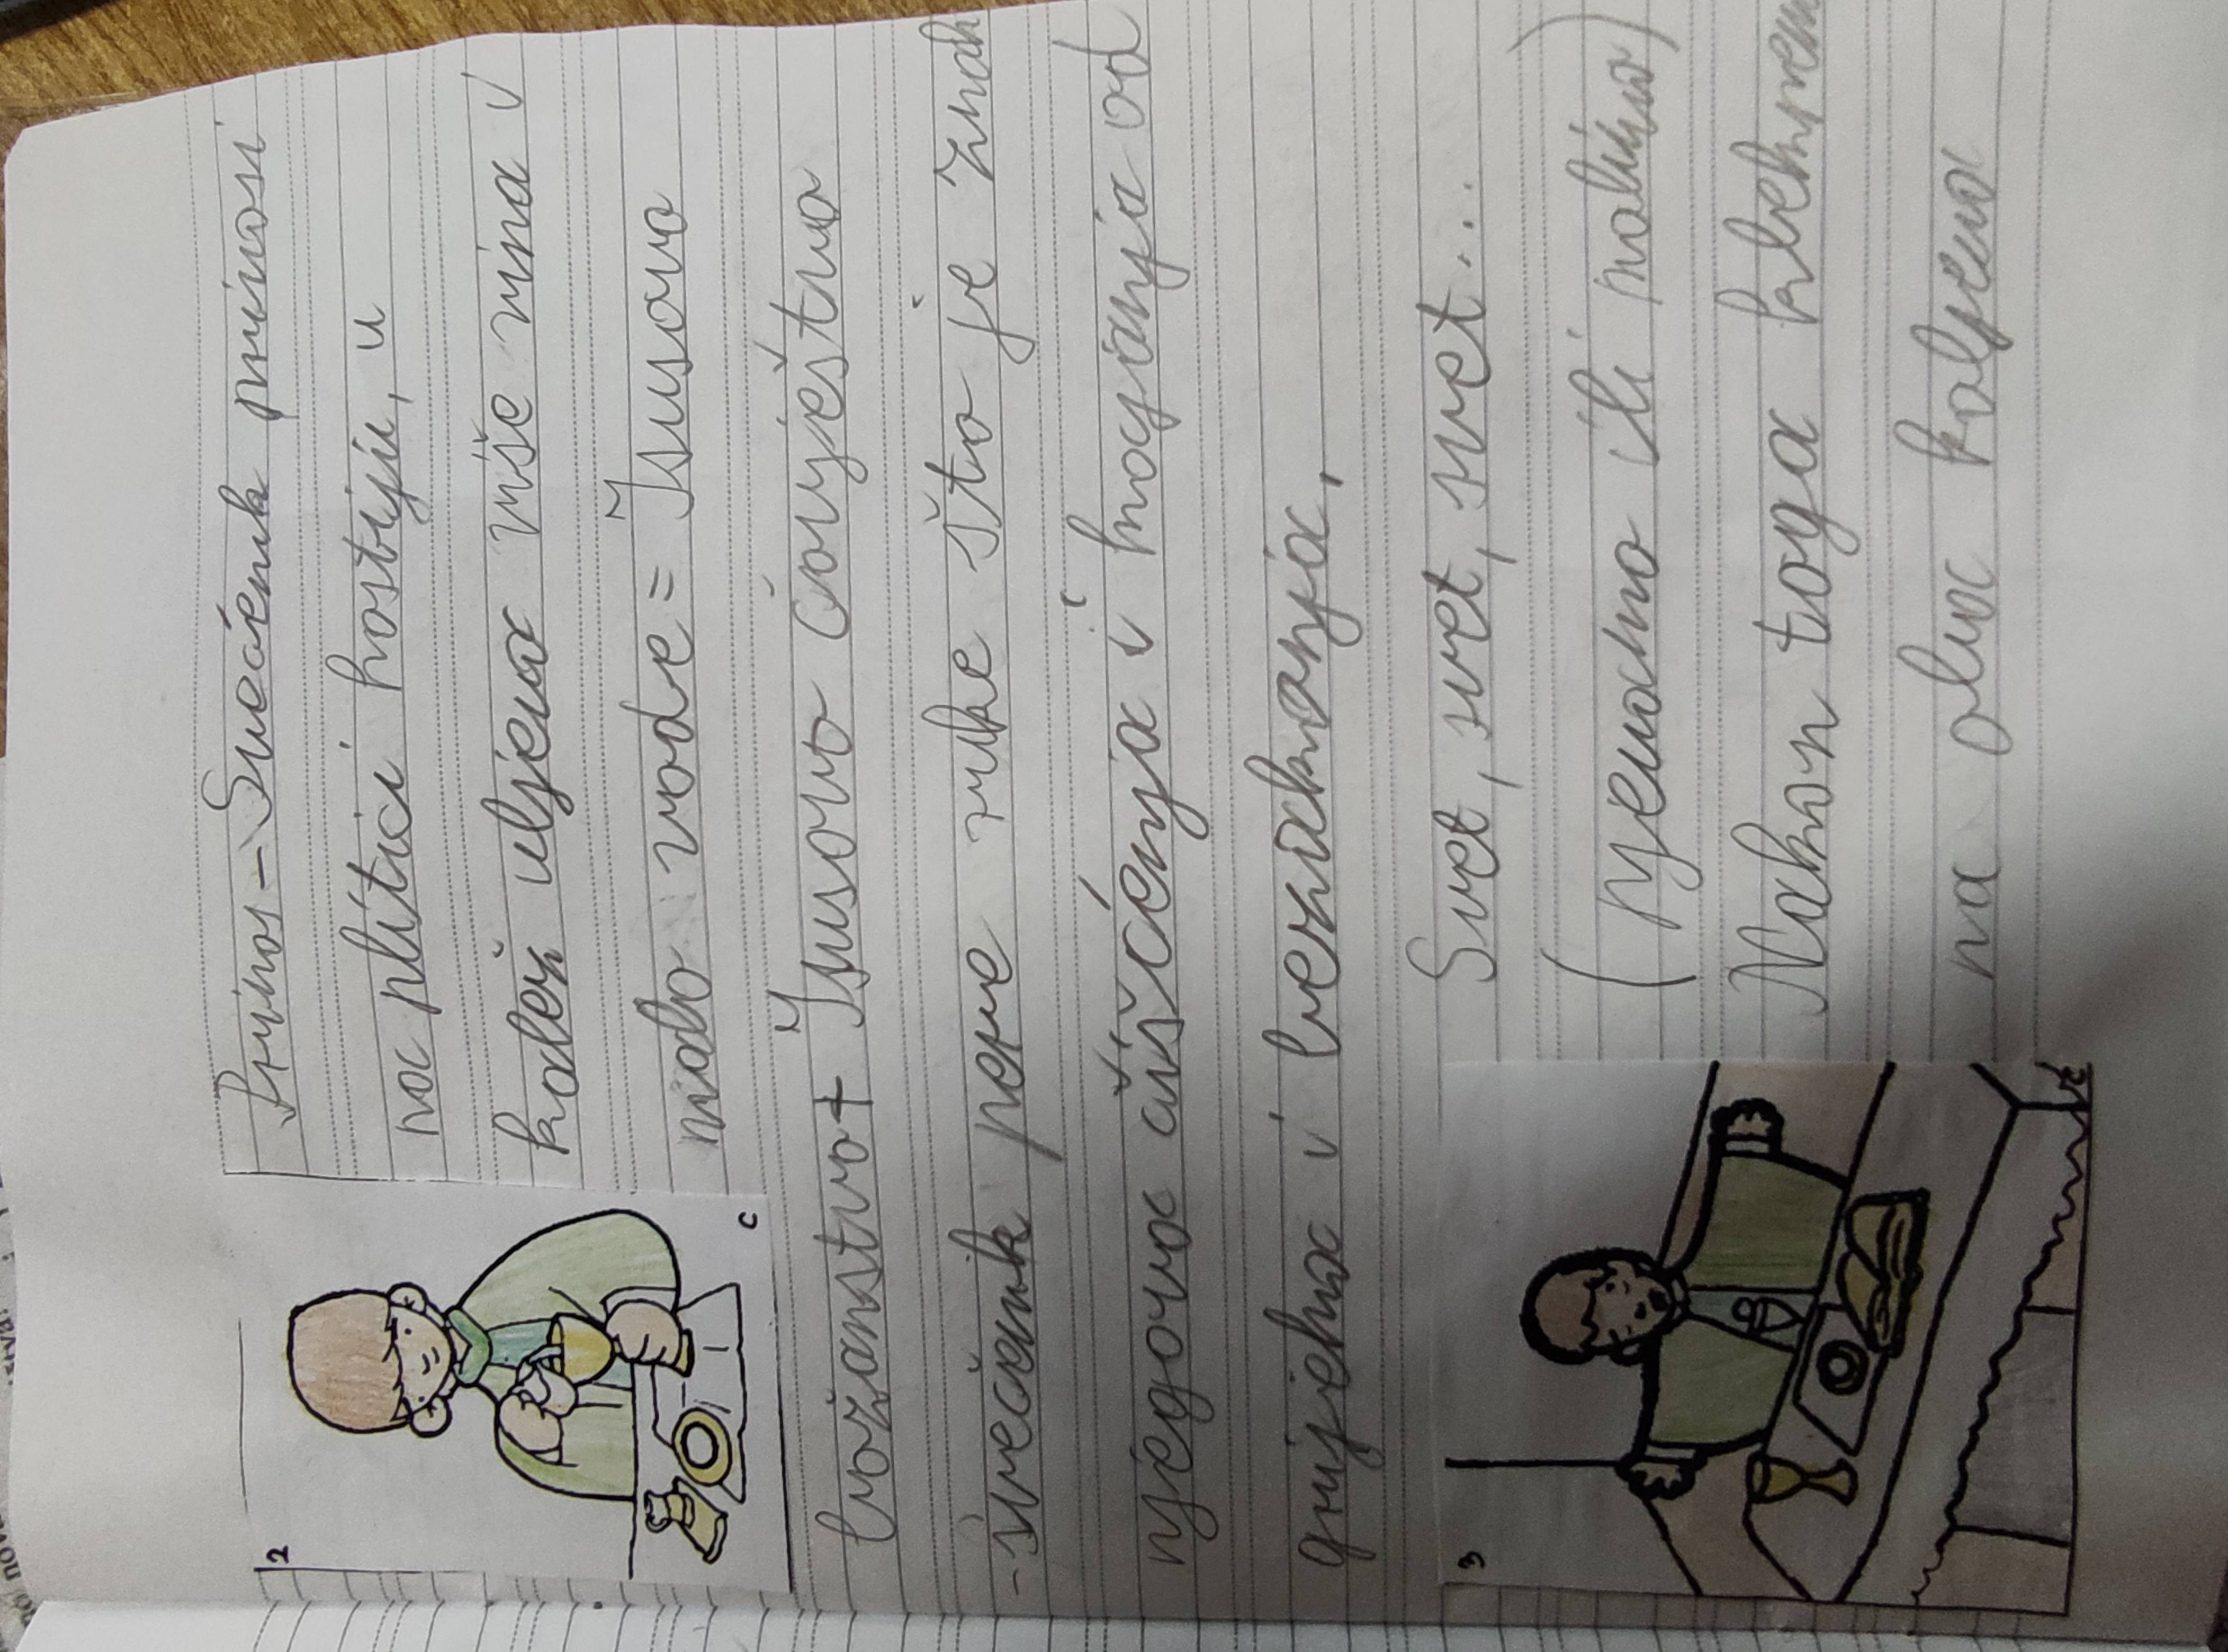 2
Prinos - Svećenik prinosi
na plitici hostiju, u
kalež uljeva više vina i
malo vode = Isusovo
c
božanstvo + Isusovo čovještvo
- svećenik pere ruke što je znak
njegova čišćenja i hocjanja od
grijeha i bezakonja,
3
Svet, svet, svet...
(pjevamo ili molimo)
Nakon toga kleknemo
na oba koljena